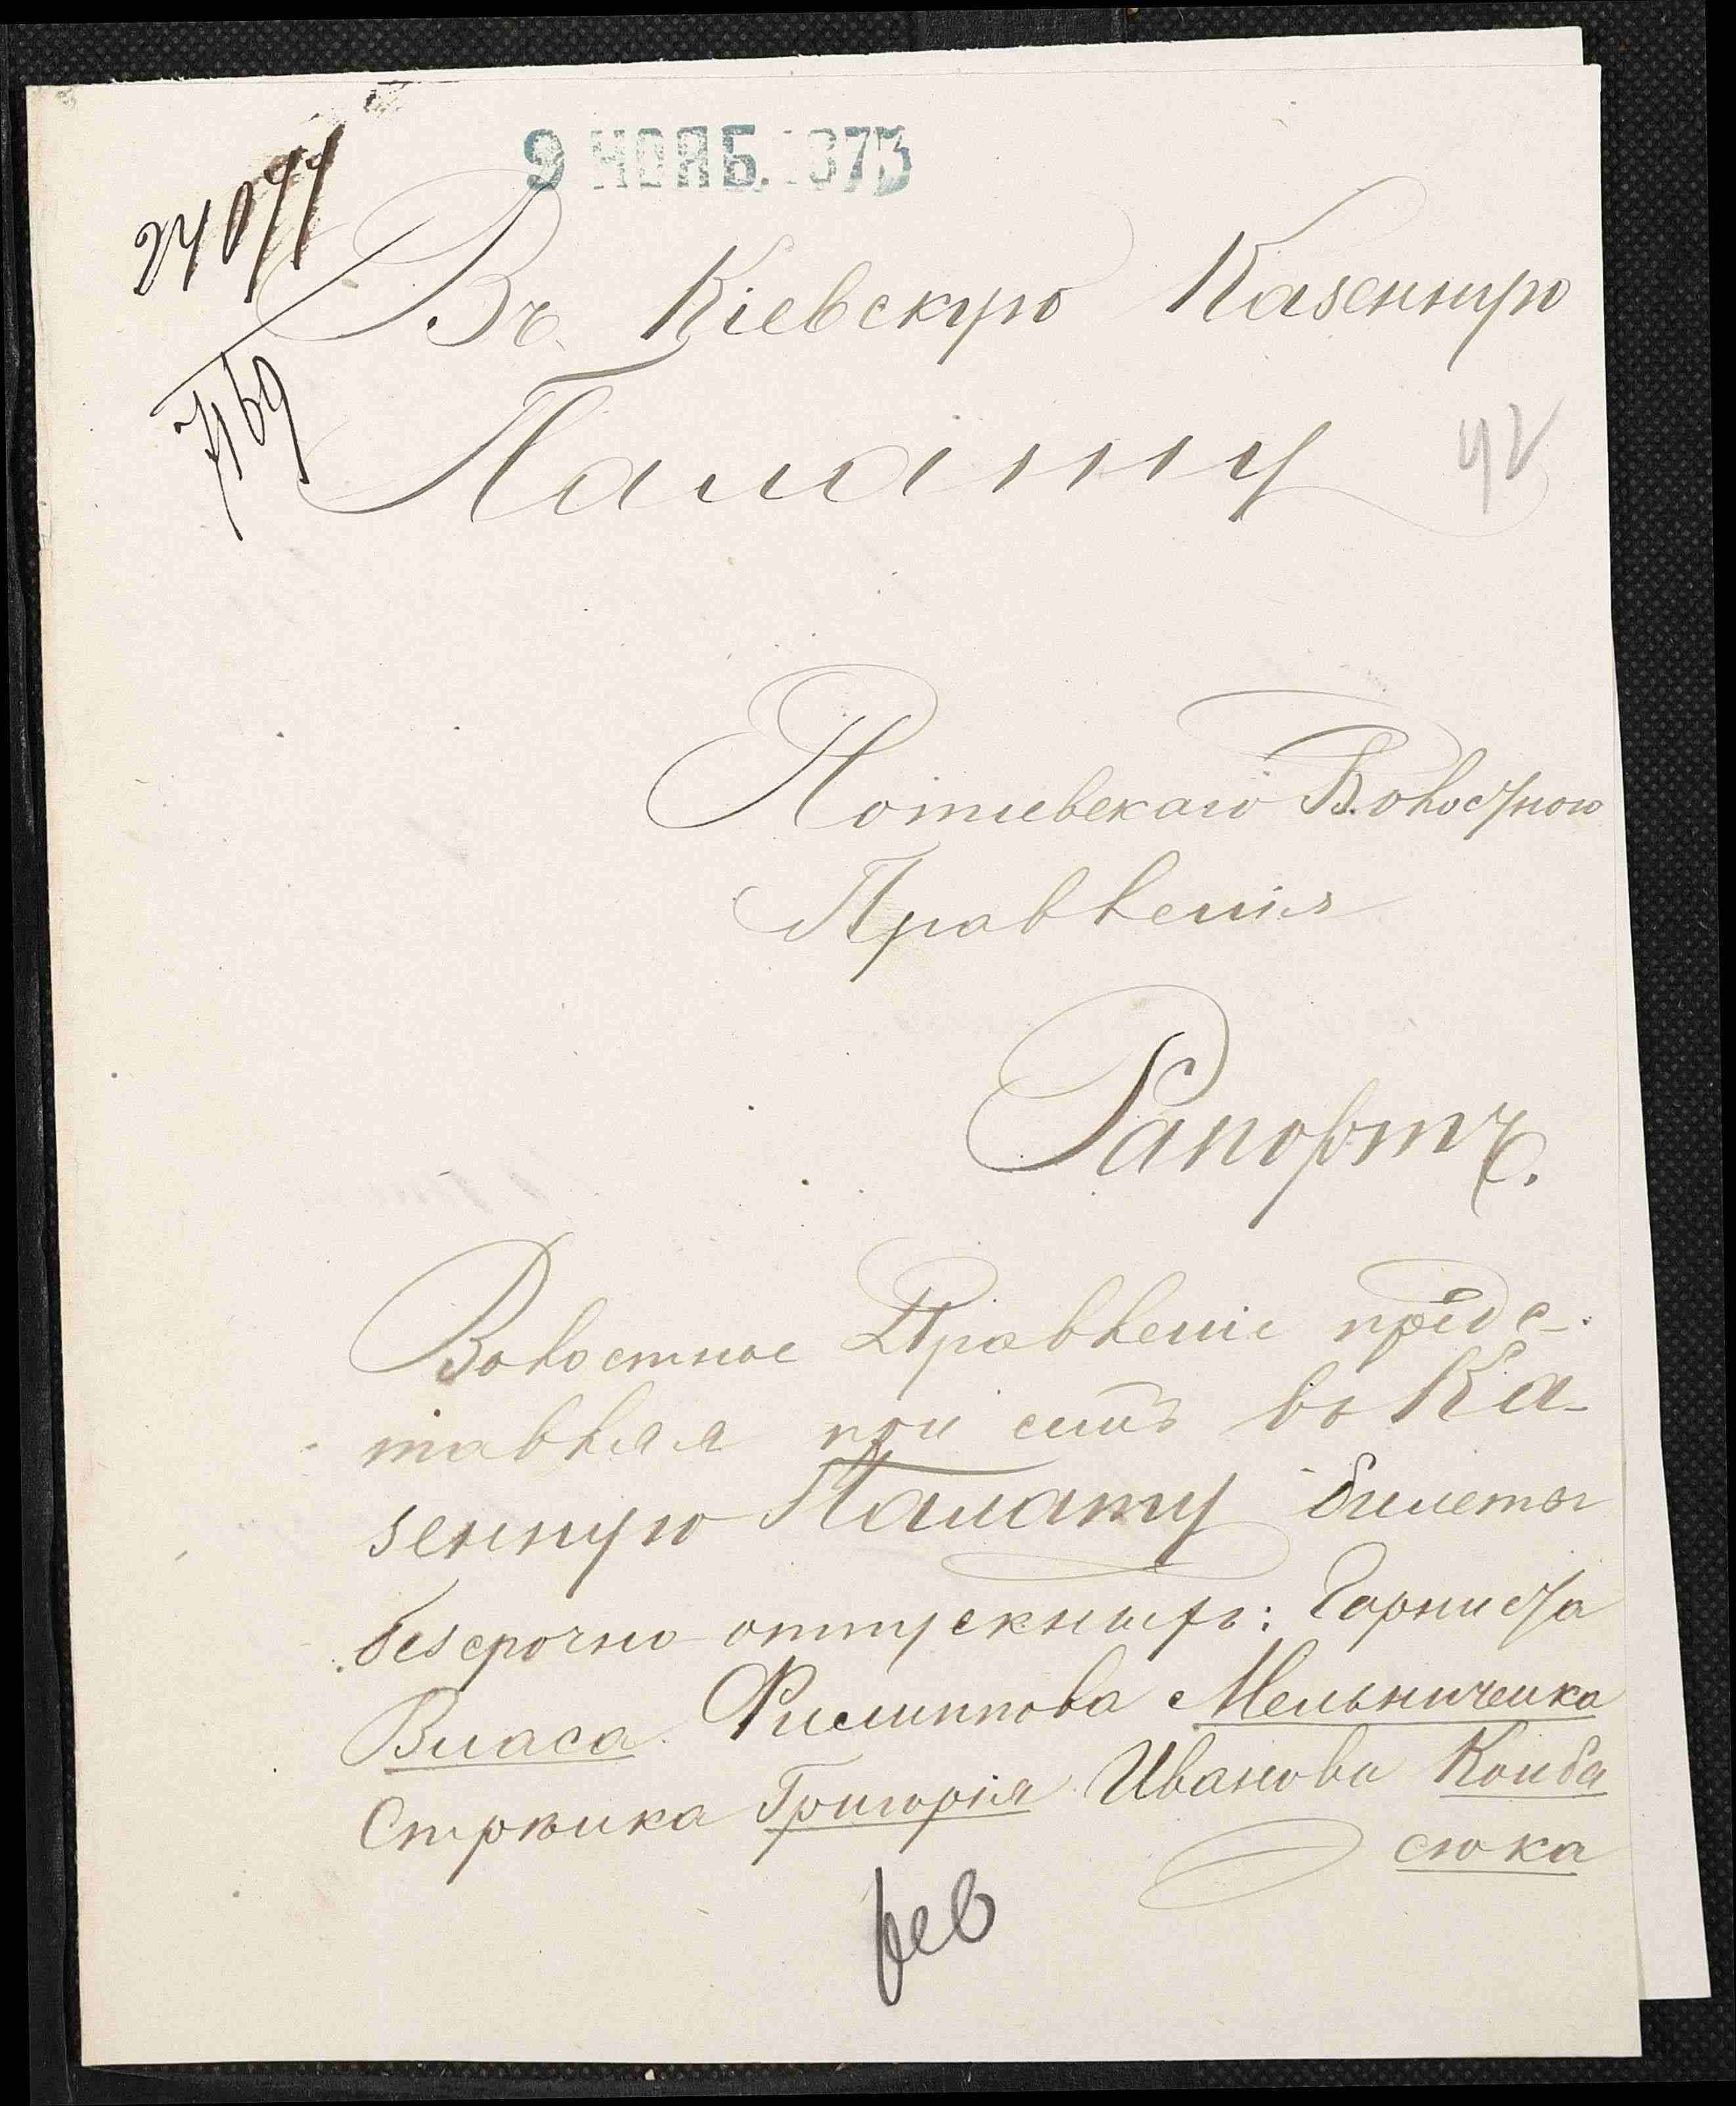 9 НОЯБ. 1873
24077
7169
Въ Кіевскую Казенную
Палату
42
Потіевскаго Волостного
Правленія
Рапортъ.
Волостное Правленіе предс-
тавляя при семъ въ Ка-
зенную Палату билеты
безсрочно отпускныхъ: Горниста
Власа Филиппова Мельниченка
Стрѣлка Григорія Иванова Колба
сюка